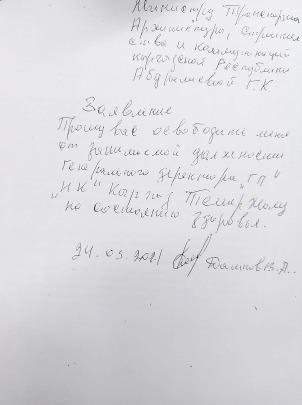 Министру Транспорта
Архитектуры, Строитель
ства и коммуникаций
Кыргызской Республики
Абдралиевой Г.К.
Заявление
Прошу вас освободить меня
от занимаемой должности
генерального директора "ГП"
"НК" Кыргыз Темир Жолу
по состоянию здоровья.
24.05.2021